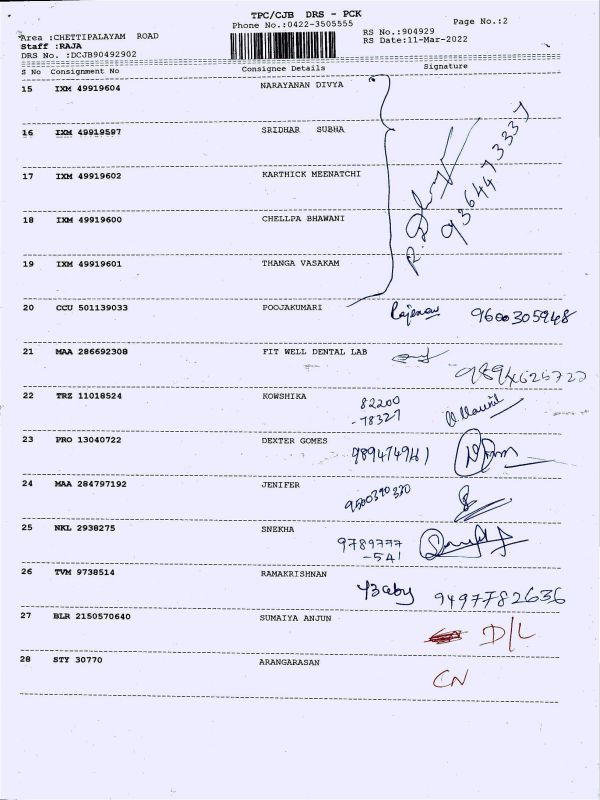 TPC/CJB DRS - PCK
Phone No.:0422-3505555
Page No.:2
Area :CHETTIPALAYAM ROAD
RS No.:904929
Staff :RAJA
RS Date:11-Mar-2022
DRS No. :DCJB90492902
S No Consignment No Consignee Details Signature
15 IXM 49919604 NARAYANAN DIVYA
16 IXM 49919597 SRIDHAR SUBHA
17 IXM 49919602 KARTHICK MEENATCHI
18 IXM 49919600 CHELLPA BHAWANI
19 IXM 49919601 THANGA VASAKAM
20 CCU 501139033 POOJAKUMARI 9600305948
21 MAA 286692308 FIT WELL DENTAL LAB
22 TRZ 11018524 KOWSHIKA 82200
-78327
23 PRO 13040722 DEXTER GOMES
24 MAA 284797192 JENIFER
25 NKL 2938275 SNEKHA 9789777
-541
26 TVM 9738514 RAMAKRISHNAN Baby 9497782636
27 BLR 2150570640 SUMAIYA ANJUN D/L
28 STY 30770 ARANGARASAN CN